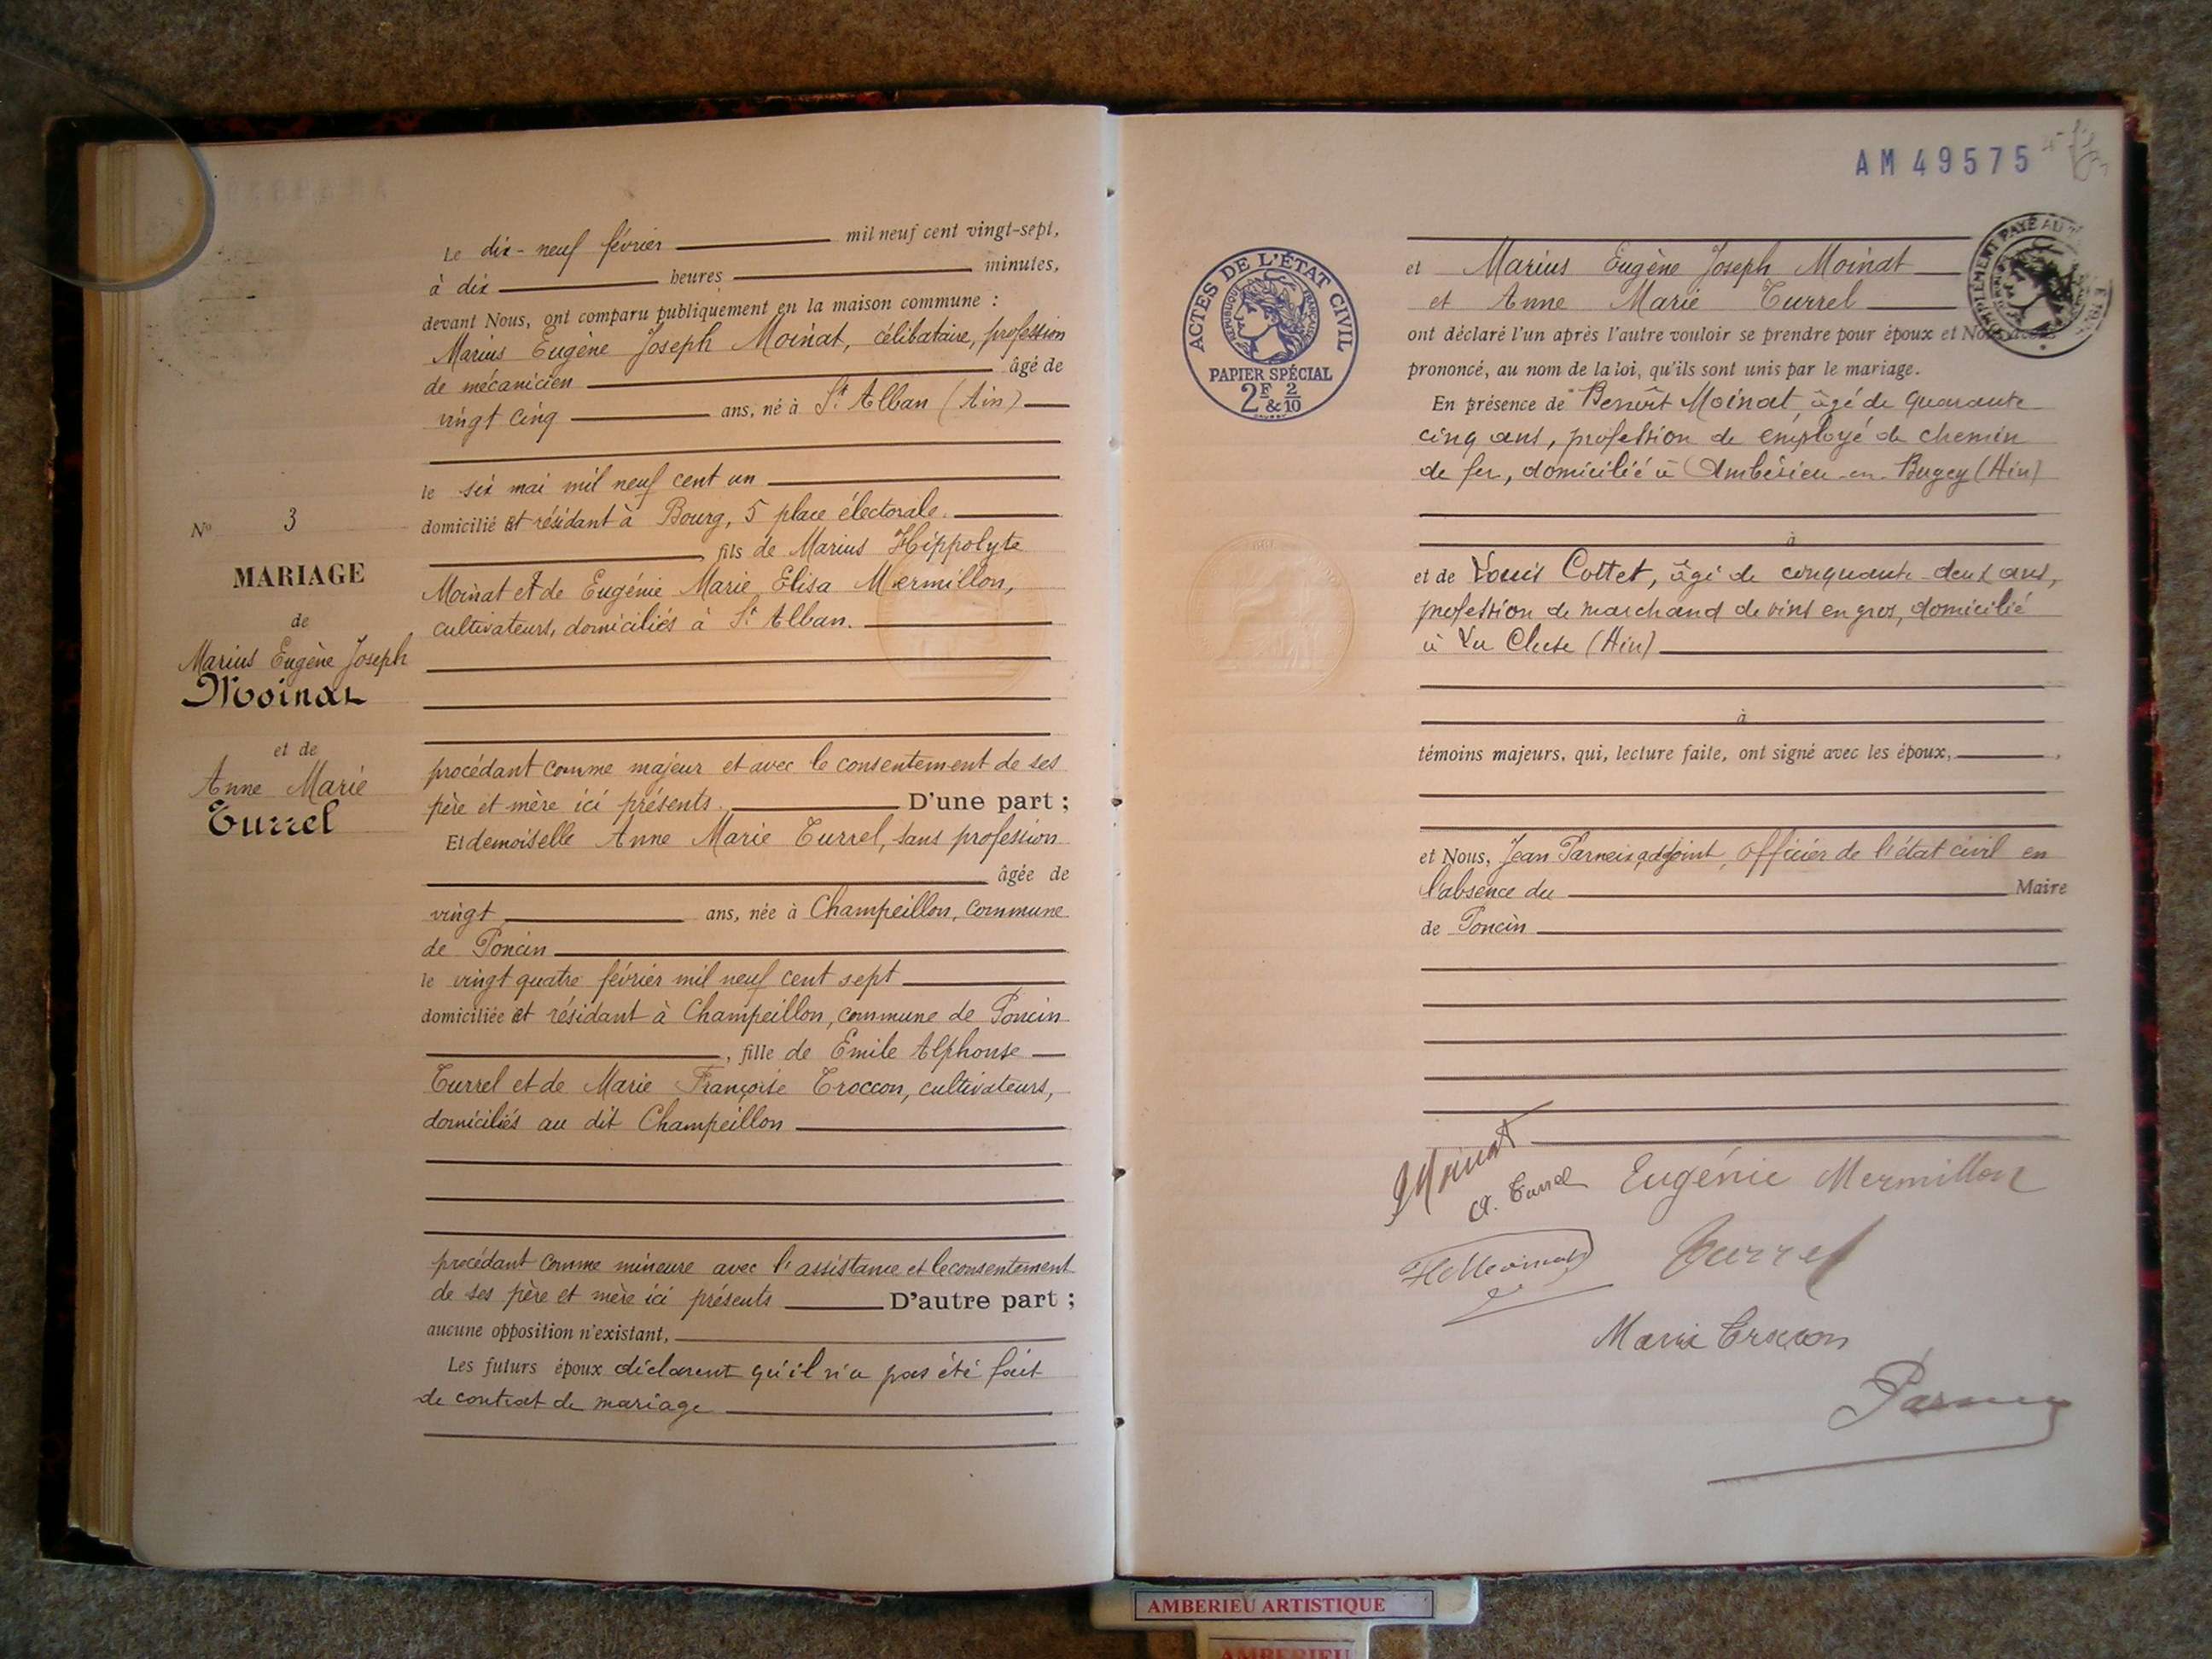 Nº 3
MARIAGE
de
Marius Eugène Joseph
Moinat
et de
Anne Marie
Turrel
Le dix-neuf février mil neuf cent vingt-sept,
à dix heures minutes,
devant Nous, ont comparu publiquement en la maison commune :
Marius Eugène Joseph Moinat, célibataire, profession
de mécanicien âgé de
vingt cinq ans, né à St Alban (Ain)
le six mai mil neuf cent un
domicilié et résidant à Bourg, 5 place électorale.
fils de Marius Hippolyte
Moinat et de Eugénie Marie Elisa Mermillon,
cultivateurs, domiciliés à St Alban.
procédant comme majeur et avec le consentement de ses
père et mère ici présents. D'une part ;
Et demoiselle Anne Marie Turrel, sans profession
âgée de
vingt ans, née à Champeillon, commune
de Poncin
le vingt quatre février mil neuf cent sept
domiciliée et résidant à Champeillon, commune de Poncin
, fille de Emile Alphonse
Turrel et de Marie Françoise Troccon, cultivateurs,
domiciliés au dit Champeillon
procédant comme mineure avec l'assistance et le consentement
de ses père et mère ici présents D'autre part ;
aucune opposition n'existant,
Les futurs époux déclarent qu'il n'a pas été fait
de contrat de mariage
AM 49575
ACTES DE L'ÉTAT CIVIL
RÉPUBLIQUE FRANÇAISE
PAPIER SPÉCIAL
2F & 2/10
PAYÉ AU
et Marius Eugène Joseph Moinat
et Anne Marie Turrel
ont déclaré l'un après l'autre vouloir se prendre pour époux et Nous avons
prononcé, au nom de la loi, qu'ils sont unis par le mariage.
En présence de Benoît Moinat, âgé de quarante
cinq ans, profession de employé de chemin
de fer, domicilié à Ambérieu-en-Bugey (Ain)
à
et de Louis Cottet, âgé de cinquante-deux ans,
profession de marchand de vins en gros, domicilié
à La Cluse (Ain)
à
témoins majeurs, qui, lecture faite, ont signé avec les époux,
et Nous, Jean Parneix, adjoint, officier de l'état civil en
l'absence du Maire
de Poncin
Moinat
A. Turrel Eugénie Mermillon
Turrel
Marie Troccon
AMBERIEU ARTISTIQUE
AMBERIEU